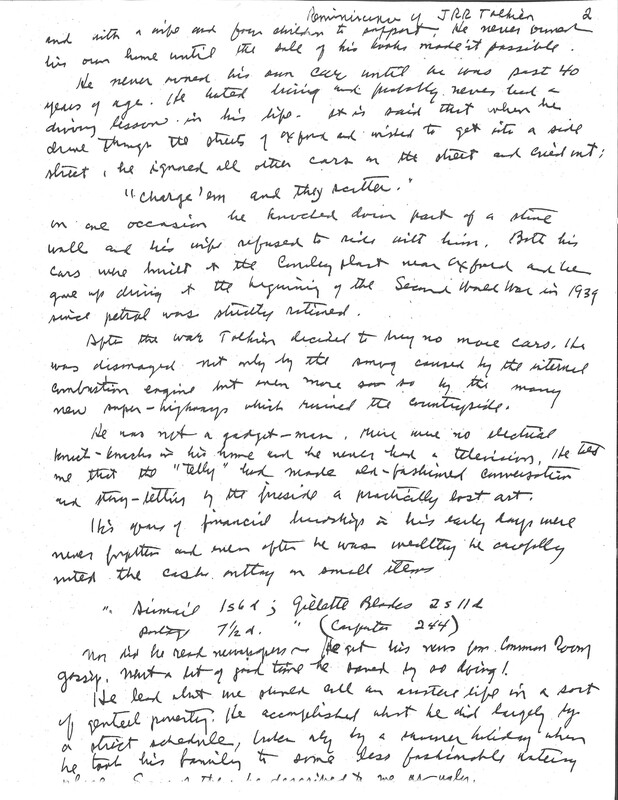 Reminiscence of JRR Tolkien 2
and with a wife and four children to support. He never owned
his own home until the sale of his books made it possible.
He never owned his own car until he was past 40
years of age. He hated driving and probably never had a
driving lesson in his life. It is said that when he
drove through the streets of Oxford and wished to get into a side
street, he ignored all other cars on the street and cried out:
"Charge 'em and they scatter."
On one occasion he knocked down part of a stone
wall and his wife refused to ride with him. Both his
cars were built at the Cowley plant near Oxford and he
gave up driving at the beginning of the Second World War in 1939
since petrol was strictly rationed.
After the war Tolkien decided to buy no more cars. He
was dismayed not only by the smog caused by the internal
combustion engine but even more so by the many
new super-highways which ruined the countryside.
He was not a gadget-man. There were no electrical
knick-knacks in his home and he never had a television. He told
me that the "telly" had made old-fashioned conversation
and story-telling by the fireside a practically lost art.
His years of financial hardships in his early days were
never forgotten and even after he was wealthy he carefully
noted the cash outlay on small items
" Airmail 1s6d; Gillette Blades 2s11d
7½d. " (Carpenter 244)
Nor did he read newspapers - He got his news from Common Room
gossip. What a lot of good time he saved by so doing!
He lead what we would call an austere life in a sort
of genteel poverty. He accomplished what he did largely by
a strict schedule, broken only by a summer holiday when
he took his family to some less fashionable watering
he described to me